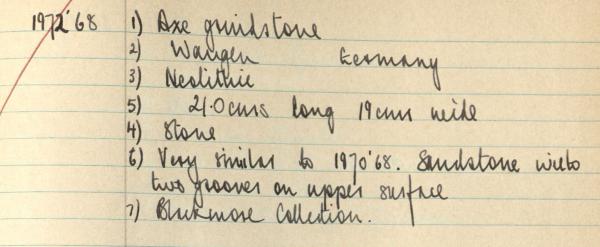 1972'68 1) Axe grindstone
2) Wangen Germany
3) Neolithic
5) 21.0cms long 19cms wide
4) Stone
6) Very similar to 1970'68. Sandstone with
two grooves on upper surface
7) Blackmore Collection.